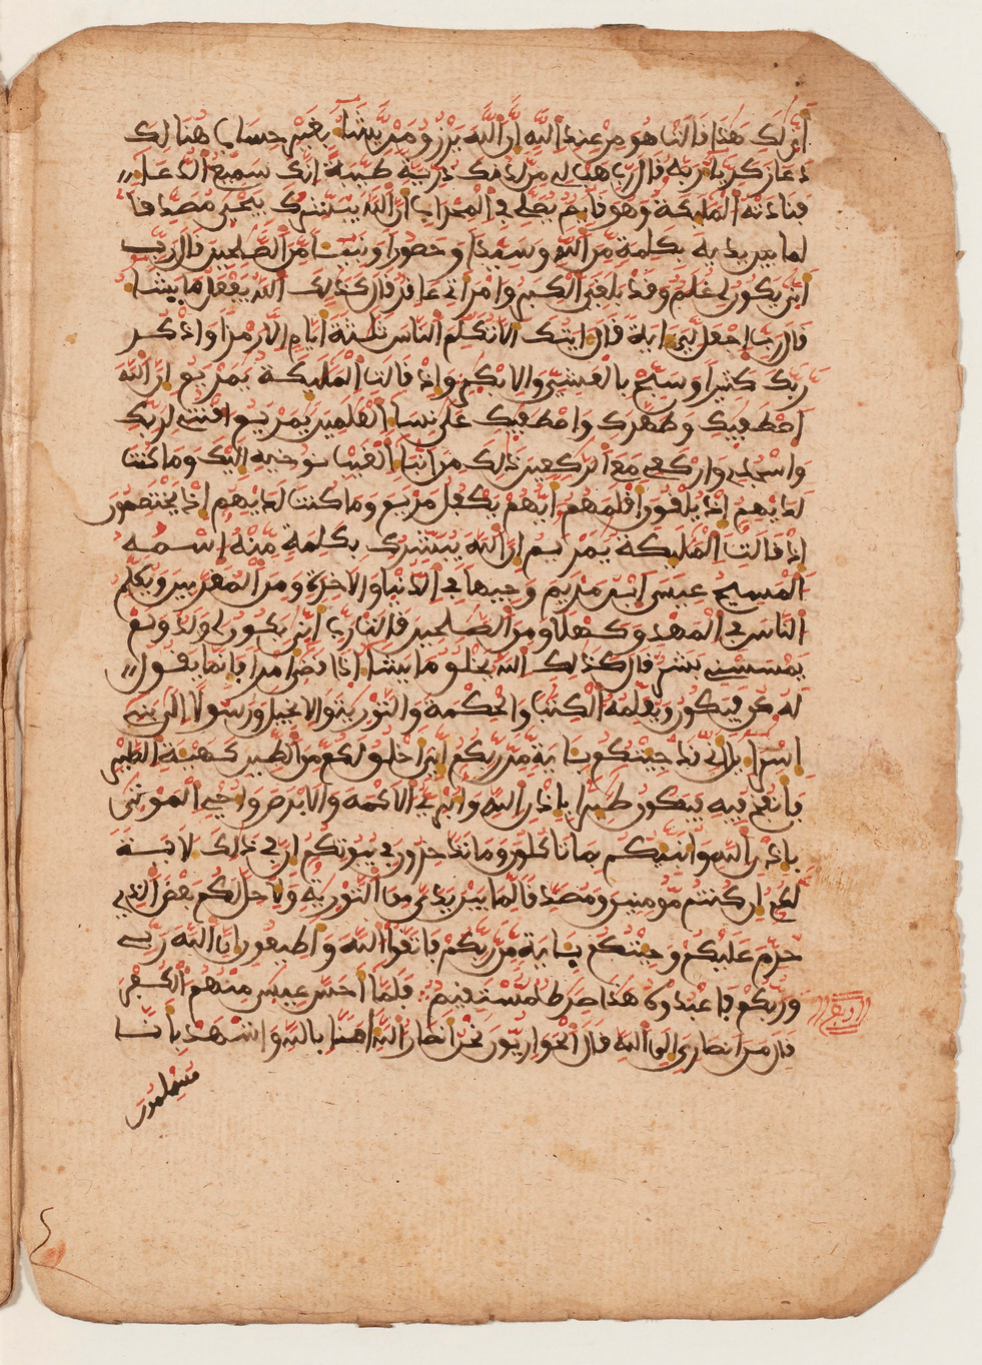 أنى لك هذا قالت هو من عند الله إن الله يرزق من يشاء بغير حساب هنالك
دعا زكريا ربه قال رب هب لي من لدنك ذرية طيبة إنك سميع الدعاء
فنادته المليكة وهو قايم يصلي في المحراب أن الله يبشرك بيحيى مصدقا
لما بين يديه بكلمة من الله وسيدا وحصورا ونبيئا من الصلحين قال رب
أنى يكون لي غلم وقد بلغني الكبر وامرأتي عاقر قال كذلك الله يفعل ما يشاء
قال رب اجعل لي ءاية قال ايتك ألا تكلم الناس ثلثة أيام إلا رمزا واذكر
ربك كثيرا وسبح بالعشي والابكر وإذ قالت المليكة يمريم إن الله
اصطفيك وطهرك واصطفيك على نساء العلمين يمريم اقنتي لربك
واسجدي واركعي مع الركعين ذلك من انباء الغيب نوحيه إليك وما كنت
لديهم إذ يلقون اقلمهم أيهم يكفل مريم وما كنت لديهم إذ يختصمون
إذ قالت المليكة يمريم إن الله يبشرك بكلمة منه اسمه
المسيح عيسى ابن مريم وجيها في الدنيا والاخرة ومن المقربين ويكلم
الناس في المهد وكهلا ومن الصلحين قالت رب أنى يكون لي ولد ولم
يمسسني بشر قال كذلك الله يخلق ما يشاء إذا قضى أمرا فإنما يقول
له كن فيكون ويعلمه الكتب والحكمة والتورية والانجيل ورسولا إلى بني
إسراءيل أني قد جيتكم بئاية من ربكم إني أخلق لكم من الطين كهيئة الطير
فأنفخ فيه فيكون طيرا بإذن الله وأبرئ الاكمه والابرص وأحي الموتى
بإذن الله وأنبئكم بما تاكلون وما تدخرون في بيوتكم إن في ذلك لاية
لكم إن كنتم مومنين ومصدقا لما بين يدي من التورية ولاحل لكم بعض الذي
حرم عليكم وجيتكم بئاية من ربكم فاتقوا الله وأطيعون إن الله ربي
وربكم فاعبدوه هذا صرط مستقيم فلما أحس عيسى منهم الكفر
قال من انصاري إلى الله قال الحواريون نحن أنصار الله ءامنا بالله واشهد بأنا
مسلمون